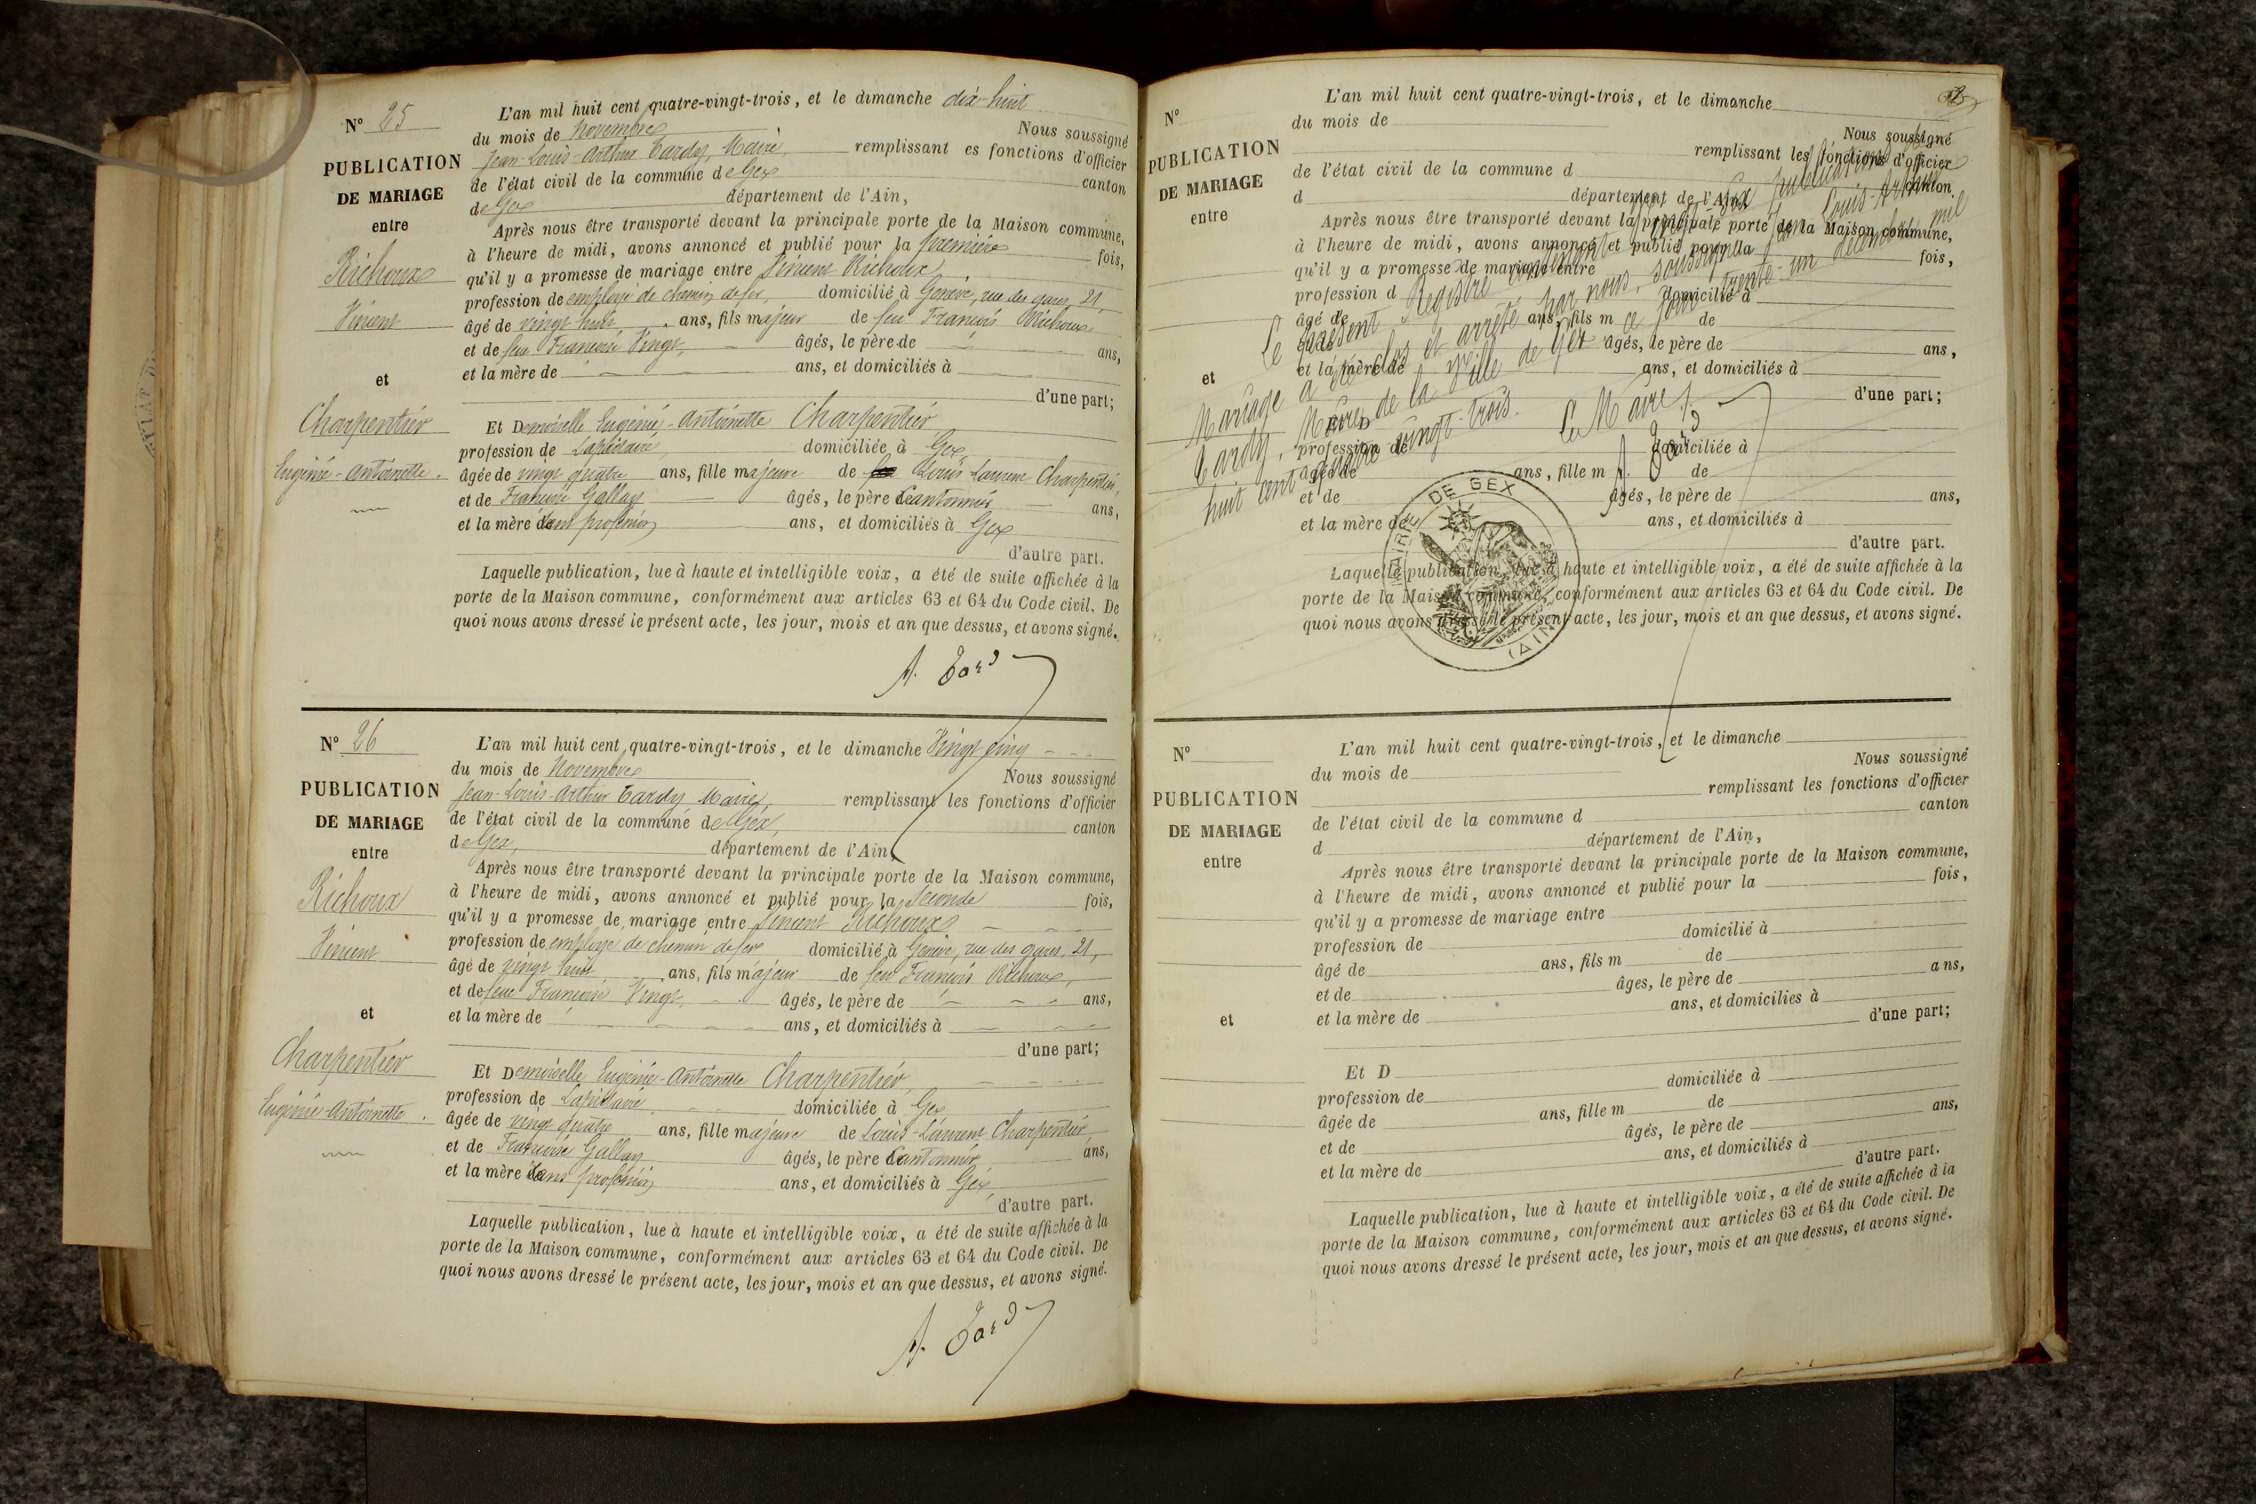 N° 25
PUBLICATION
DE MARIAGE
entre
Richoux
Vincent
et
Charpentier
Eugénie-Antoinette.
L'an mil huit cent quatre-vingt-trois, et le dimanche dix-huit
du mois de Novembre Nous soussigné
Jean-Louis-Arthur Tardy, Maire, remplissant es fonctions d'officier
de l'état civil de la commune de Gex canton
de Gex département de l'Ain,
Après nous être transporté devant la principale porte de la Maison commune,
à l'heure de midi, avons annoncé et publié pour la première fois,
qu'il y a promesse de mariage entre Vincent Richoux
profession de employé de chemin de fer, domicilié à Genève, rue des gares, 21,
âgé de vingt huit ans, fils majeur de feu François Richoux
et de feue Françoise Vingt, âgés, le père de ans,
et la mère de ans, et domiciliés à
d'une part;
Et Demoiselle Eugénie-Antoinette Charpentier
profession de Lapidaire, domiciliée à Gex,
âgée de vingt quatre ans, fille majeure de Louis Laurent Charpentier,
et de Françoise Gallay âgés, le père Cantonnier ans,
et la mère sans profession, ans, et domiciliés à Gex
d'autre part.
Laquelle publication, lue à haute et intelligible voix, a été de suite affichée à la
porte de la Maison commune, conformément aux articles 63 et 64 du Code civil. De
quoi nous avons dressé le présent acte, les jour, mois et an que dessus, et avons signé.
A. Tardy
N° 26
PUBLICATION
DE MARIAGE
entre
Richoux
Vincent
et
Charpentier
Eugénie Antoinette.
L'an mil huit cent quatre-vingt-trois, et le dimanche Vingt cinq
du mois de Novembre Nous soussigné
Jean-Louis-Arthur Tardy Maire, remplissant les fonctions d'officier
de l'état civil de la commune de Gex, canton
de Gex, département de l'Ain,
Après nous être transporté devant la principale porte de la Maison commune,
à l'heure de midi, avons annoncé et publié pour la Seconde fois,
qu'il y a promesse de mariage entre Vincent Richoux
profession de employé de chemin de fer domicilié à Genève, rue des gares, 21,
âgé de vingt huit ans, fils majeur de feu François Richoux,
et de feue Françoise Vingt, âgés, le père de ans,
et la mère de ans, et domiciliés à
d'une part;
Et Demoiselle Eugénie-Antoinette Charpentier,
profession de Lapidaire domiciliée à Gex
âgée de vingt quatre ans, fille majeure de Louis-Laurent Charpentier
et de Françoise Gallay âgés, le père Cantonnier ans,
et la mère sans profession, ans, et domiciliés à Gex,
d'autre part.
Laquelle publication, lue à haute et intelligible voix, a été de suite affichée à la
porte de la Maison commune, conformément aux articles 63 et 64 du Code civil. De
quoi nous avons dressé le présent acte, les jour, mois et an que dessus, et avons signé.
A. Tardy
N°
PUBLICATION
DE MARIAGE
entre
et
L'an mil huit cent quatre-vingt-trois, et le dimanche
du mois de Nous soussigné
remplissant les fonctions d'officier
de l'état civil de la commune d canton
d département de l'Ain,
Après nous être transporté devant la principale porte de la Maison commune,
à l'heure de midi, avons annoncé et publié pour la fois,
qu'il y a promesse de mariage entre
profession d domicilié à
âgé de ans, fils m de
et de âgés, le père de ans,
et la mère de ans, et domiciliés à
d'une part;
Et D
profession de domiciliée à
âgée de ans, fille m de
et de âgés, le père de ans,
et la mère de ans, et domiciliés à
d'autre part.
Laquelle publication, lue à haute et intelligible voix, a été de suite affichée à la
porte de la Maison commune, conformément aux articles 63 et 64 du Code civil. De
quoi nous avons dressé le présent acte, les jour, mois et an que dessus, et avons signé.
Le présent Registre contenant publications de
Mariage a été clos et arrêté par nous, soussigné Jean Louis-Arthur
Tardy, Maire de la Ville de Gex ce jour trente-un décembre mil
huit cent quatre vingt-trois.
Le Maire,
A. Tardy
MAIRIE DE GEX
(AIN)
N°
PUBLICATION
DE MARIAGE
entre
et
L'an mil huit cent quatre-vingt-trois, et le dimanche
du mois de Nous soussigné
remplissant les fonctions d'officier
de l'état civil de la commune d canton
d département de l'Ain,
Après nous être transporté devant la principale porte de la Maison commune,
à l'heure de midi, avons annoncé et publié pour la fois,
qu'il y a promesse de mariage entre
profession de domicilié à
âgé de ans, fils m de
et de âges, le père de ans,
et la mère de ans, et domicilies à
d'une part;
Et D
profession de domiciliée à
âgée de ans, fille m de
et de âgés, le père de ans,
et la mère de ans, et domiciliés à
d'autre part.
Laquelle publication, lue à haute et intelligible voix, a été de suite affichée à la
porte de la Maison commune, conformément aux articles 63 et 64 du Code civil. De
quoi nous avons dressé le présent acte, les jour, mois et an que dessus, et avons signé.